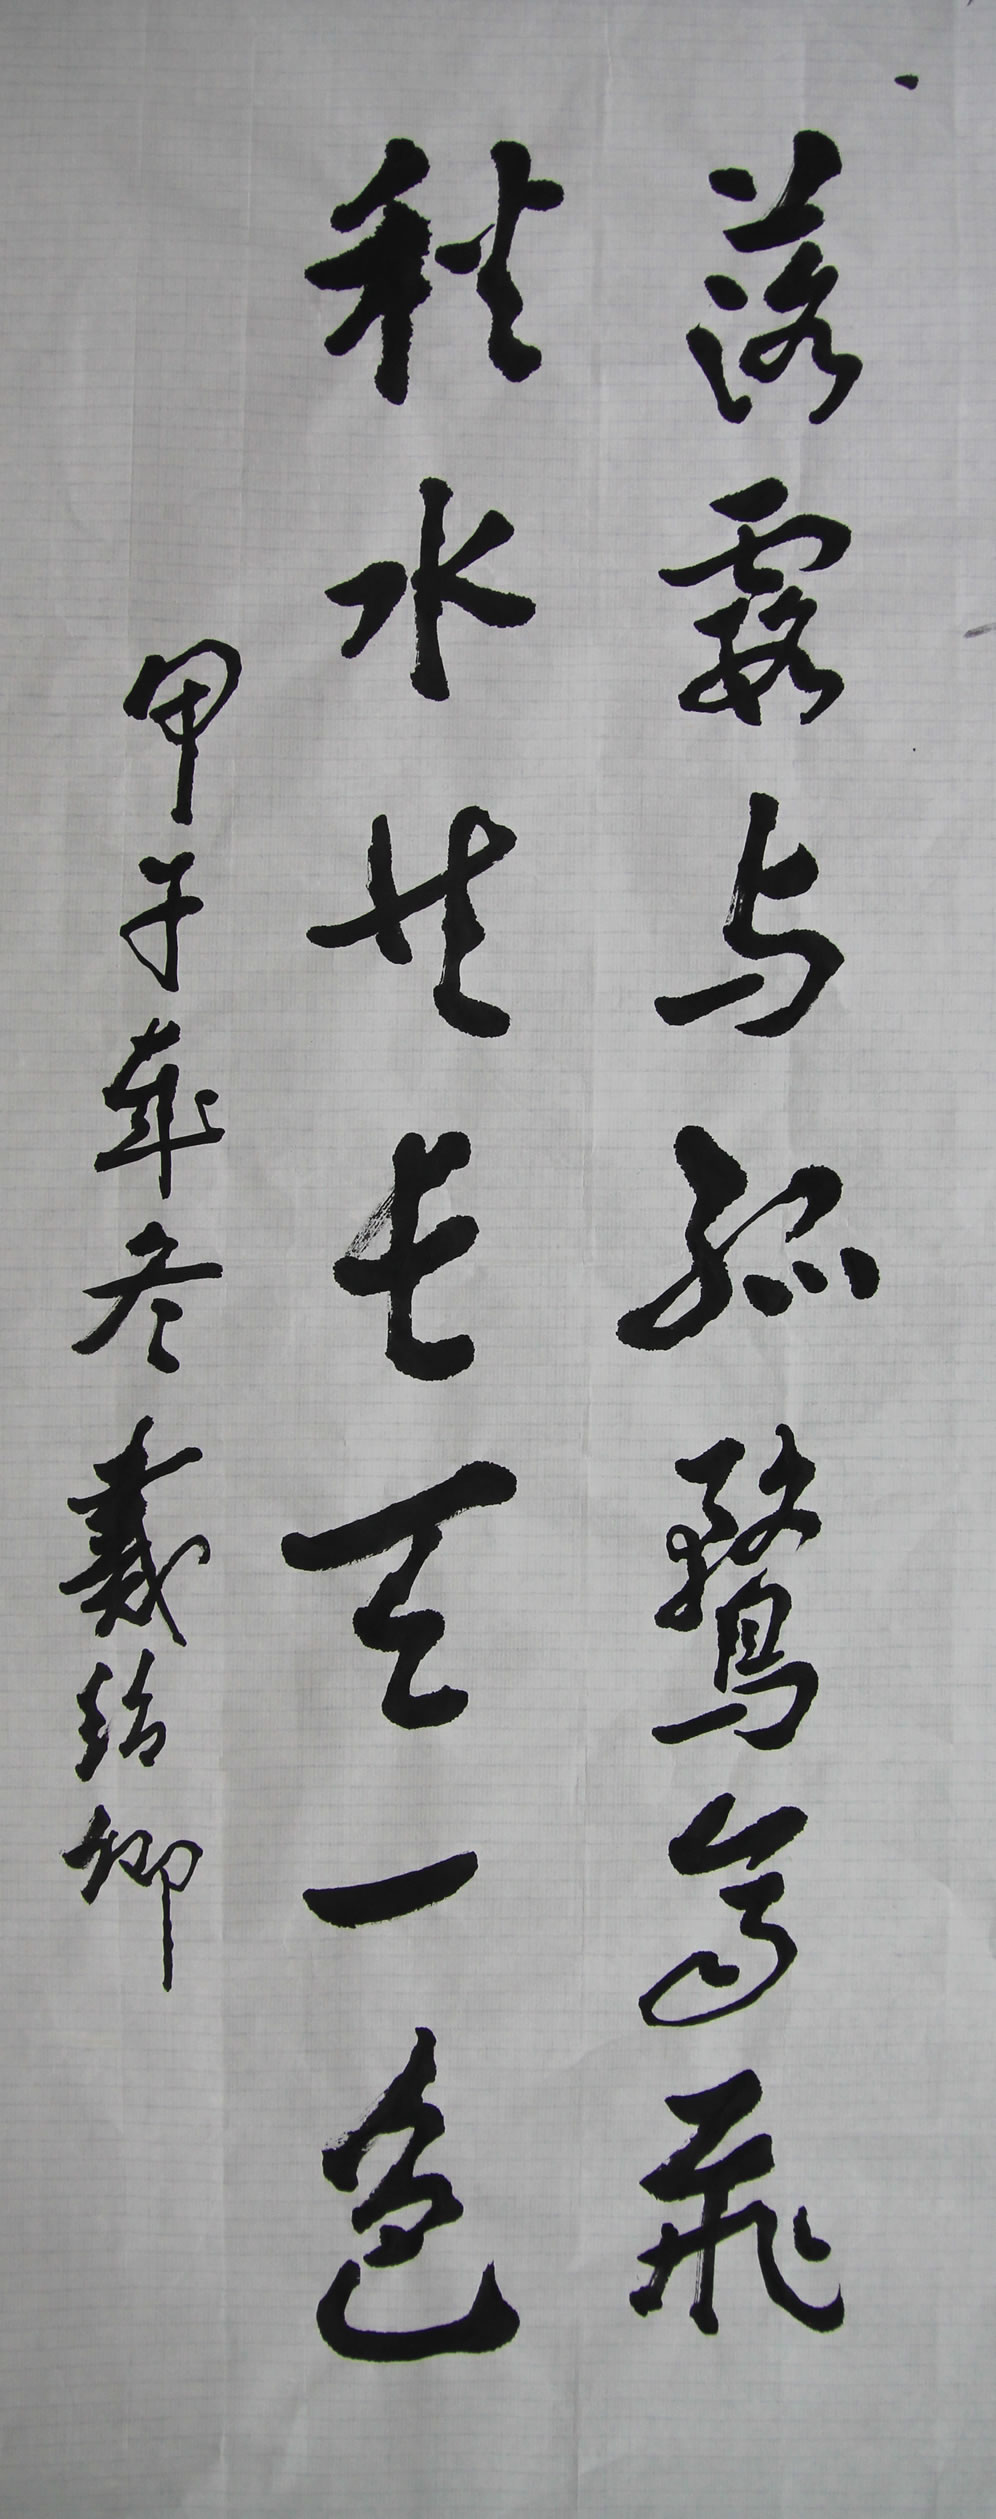 落霞与孤鹜齐飞
秋水共长天一色
甲子年冬 戴绍卿